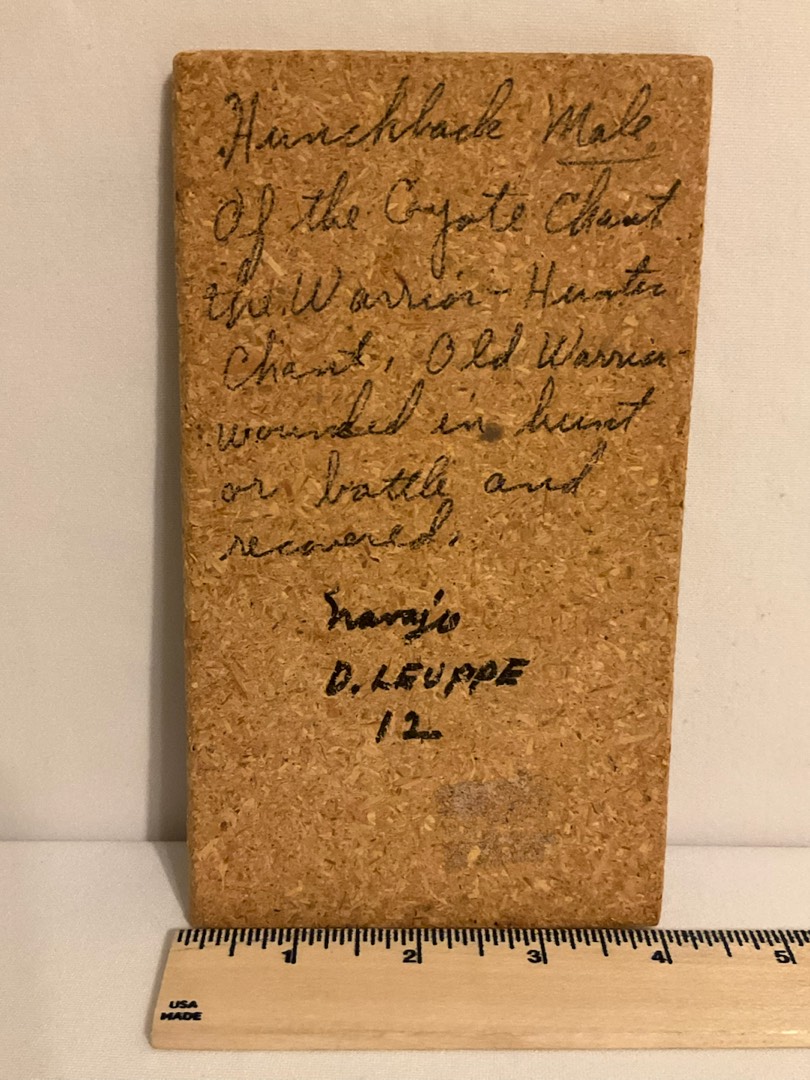 Hunchback Male
Of the Coyote Chant
the Warrior-Hunter
Chant, Old Warrior
wounded in hunt
or battle and
recovered.
Navajo
D. LEUPPE
12
1 2 3 4 5
USA
MADE